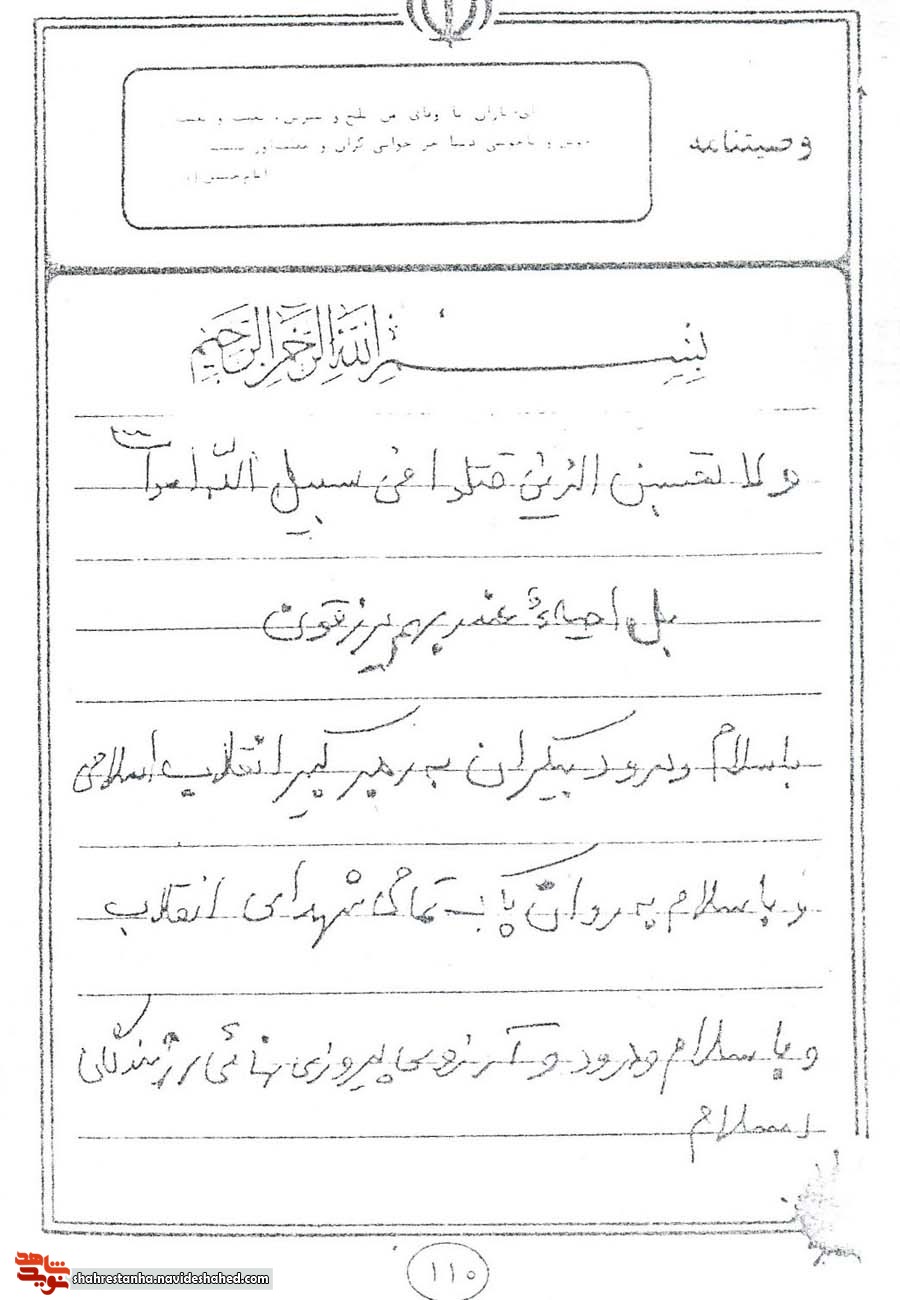 وصیتنامه
ای یاران با وفای من تلخ و شیرین،
و ناخوشی دنیا هر خوابی گران و
امام حسین (ع)
بِسْمِ اللَّهِ الرَّحْمنِ الرَّحيمِ
و لا تحسبن الذین قتلوا فی سبیل اللّه امواتا
بل احیاءٌ عند ربهم یرزقون
با سلام و درود بیکران به رهبر کبیر انقلاب اسلامی
و با سلام به روان پاک تمامی شهدای انقلاب
و با سلام و درود و آرزوی پیروزی نهائی رزمندگان
اسلام
۱۱۰
شاهد
نوید
shahrestanha.navideshahed.com